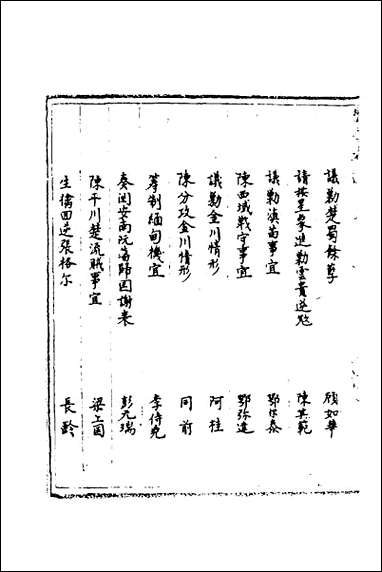 議勦楚蜀餘孽 顔如華
請按星象進勦雲貴逆 陳其範
議勦滇苗事宜 鄂尔泰
陳西域戰守事宜 鄂弥達
議勦金川情形 阿桂
陳分攻金川情形 同前
籌制緬甸機宜 李侍尧
奏闵安南阮 歸因谢来 彭元瑞
陳平川楚流賊事宜 梁上国
生擒回逆張格尔 長齡